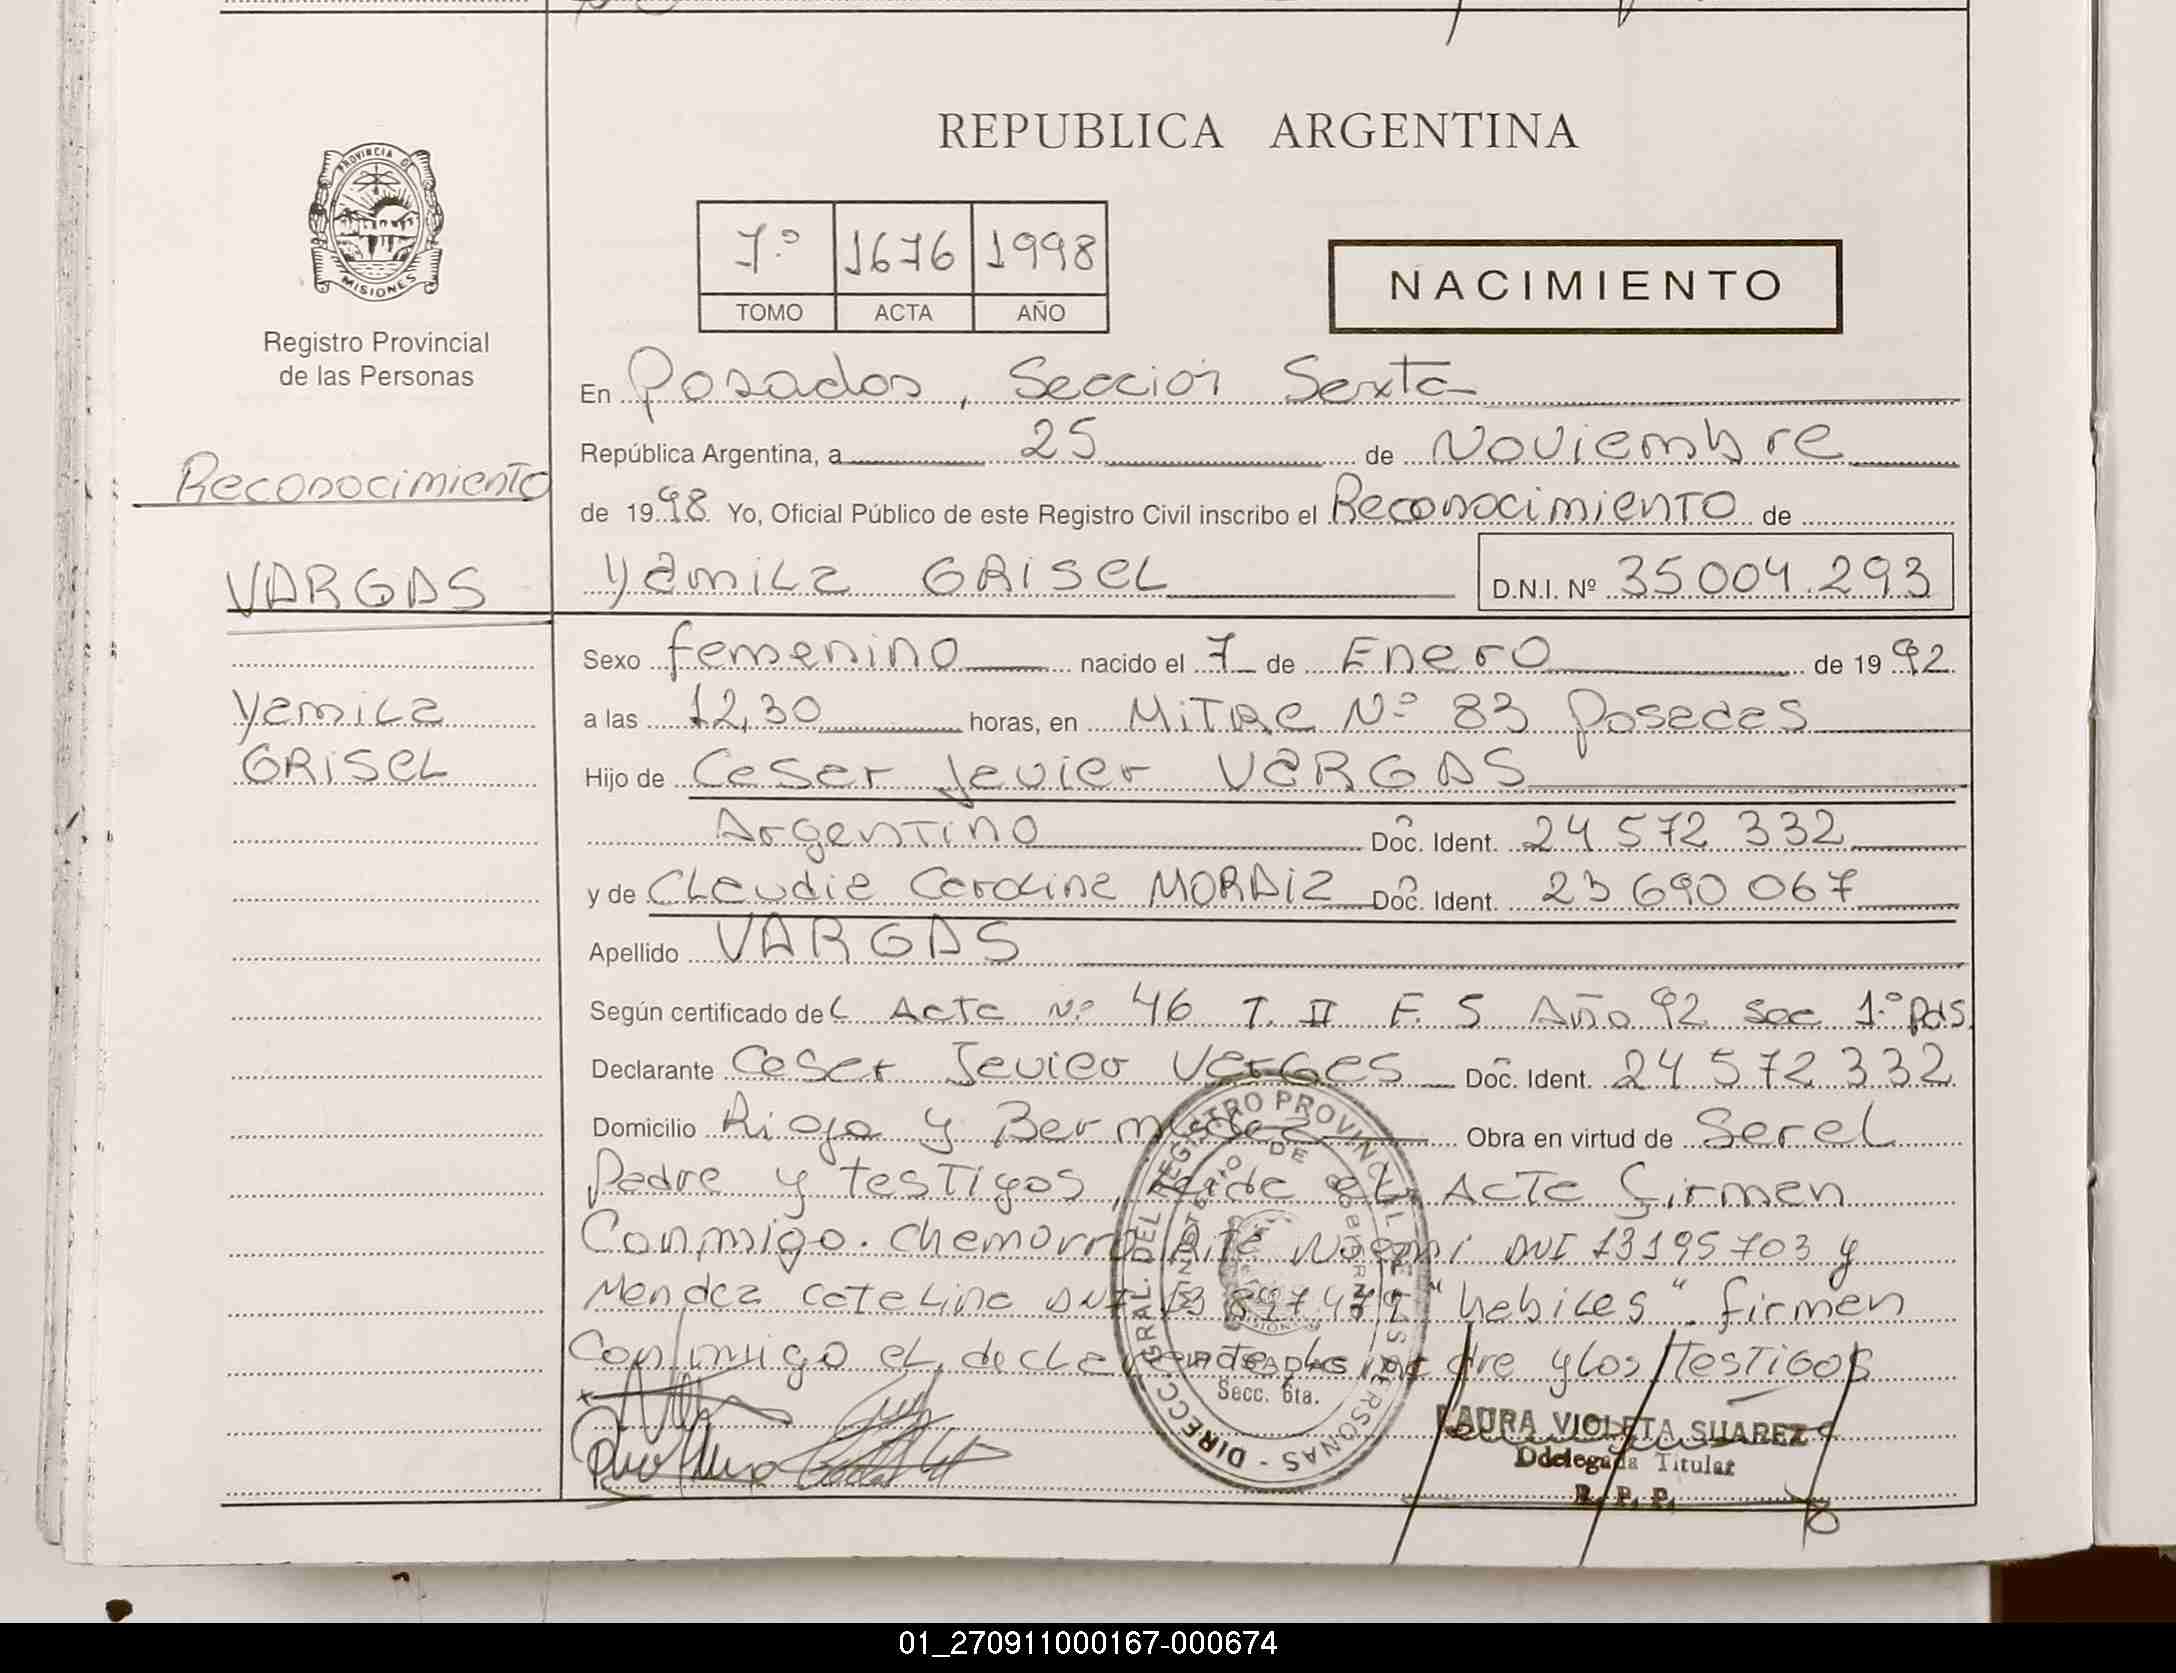 REPUBLICA ARGENTINA
PROVINCIA DE
MISIONES
Registro Provincial
de las Personas
7º 1676 1998
TOMO ACTA AÑO
NACIMIENTO
En Posadas, Sección Sexta
República Argentina, a 25 de Noviembre
de 1998 Yo, Oficial Público de este Registro Civil inscribo el Reconocimiento de
Yamila GRISEL D.N.I. Nº 35004.293
Reconocimiento
VARGAS
Yamila
GRISEL
Sexo femenino nacido el 7 de Enero de 1992
a las 12,30 horas, en MiTRe Nº 83 Posadas
Hijo de Cesar Javier VARGAS
Argentino Doc. Ident. 24 572 332
y de Claudia Carolina MORAIZ Doc. Ident. 23 690 067
Apellido VARGAS
Según certificado del Acta Nº 46 T. II F. 5 Año 92 Sec 1º Pdas
Declarante Cesar Javier Vargas Doc. Ident. 24 572 332
Domicilio Rioja y Bermudez Obra en virtud de Ser el
Padre y testigos, el Acta Firman
Conmigo. Chamorro Noemi DNI 13195703 y
Mendez Catalina DNI "habiles". firman
Conmigo el declarante la madre y los Testigos
DIRECC. GRAL. DEL REGISTRO PROVINCIAL DE LAS PERSONAS
MINISTERIO DE GOBIERNO
MISIONES
POSADAS
Secc. 6ta.
LAURA VIOLETA SUAREZ
Ddelegada Titular
R. P. P.
01_270911000167-000674